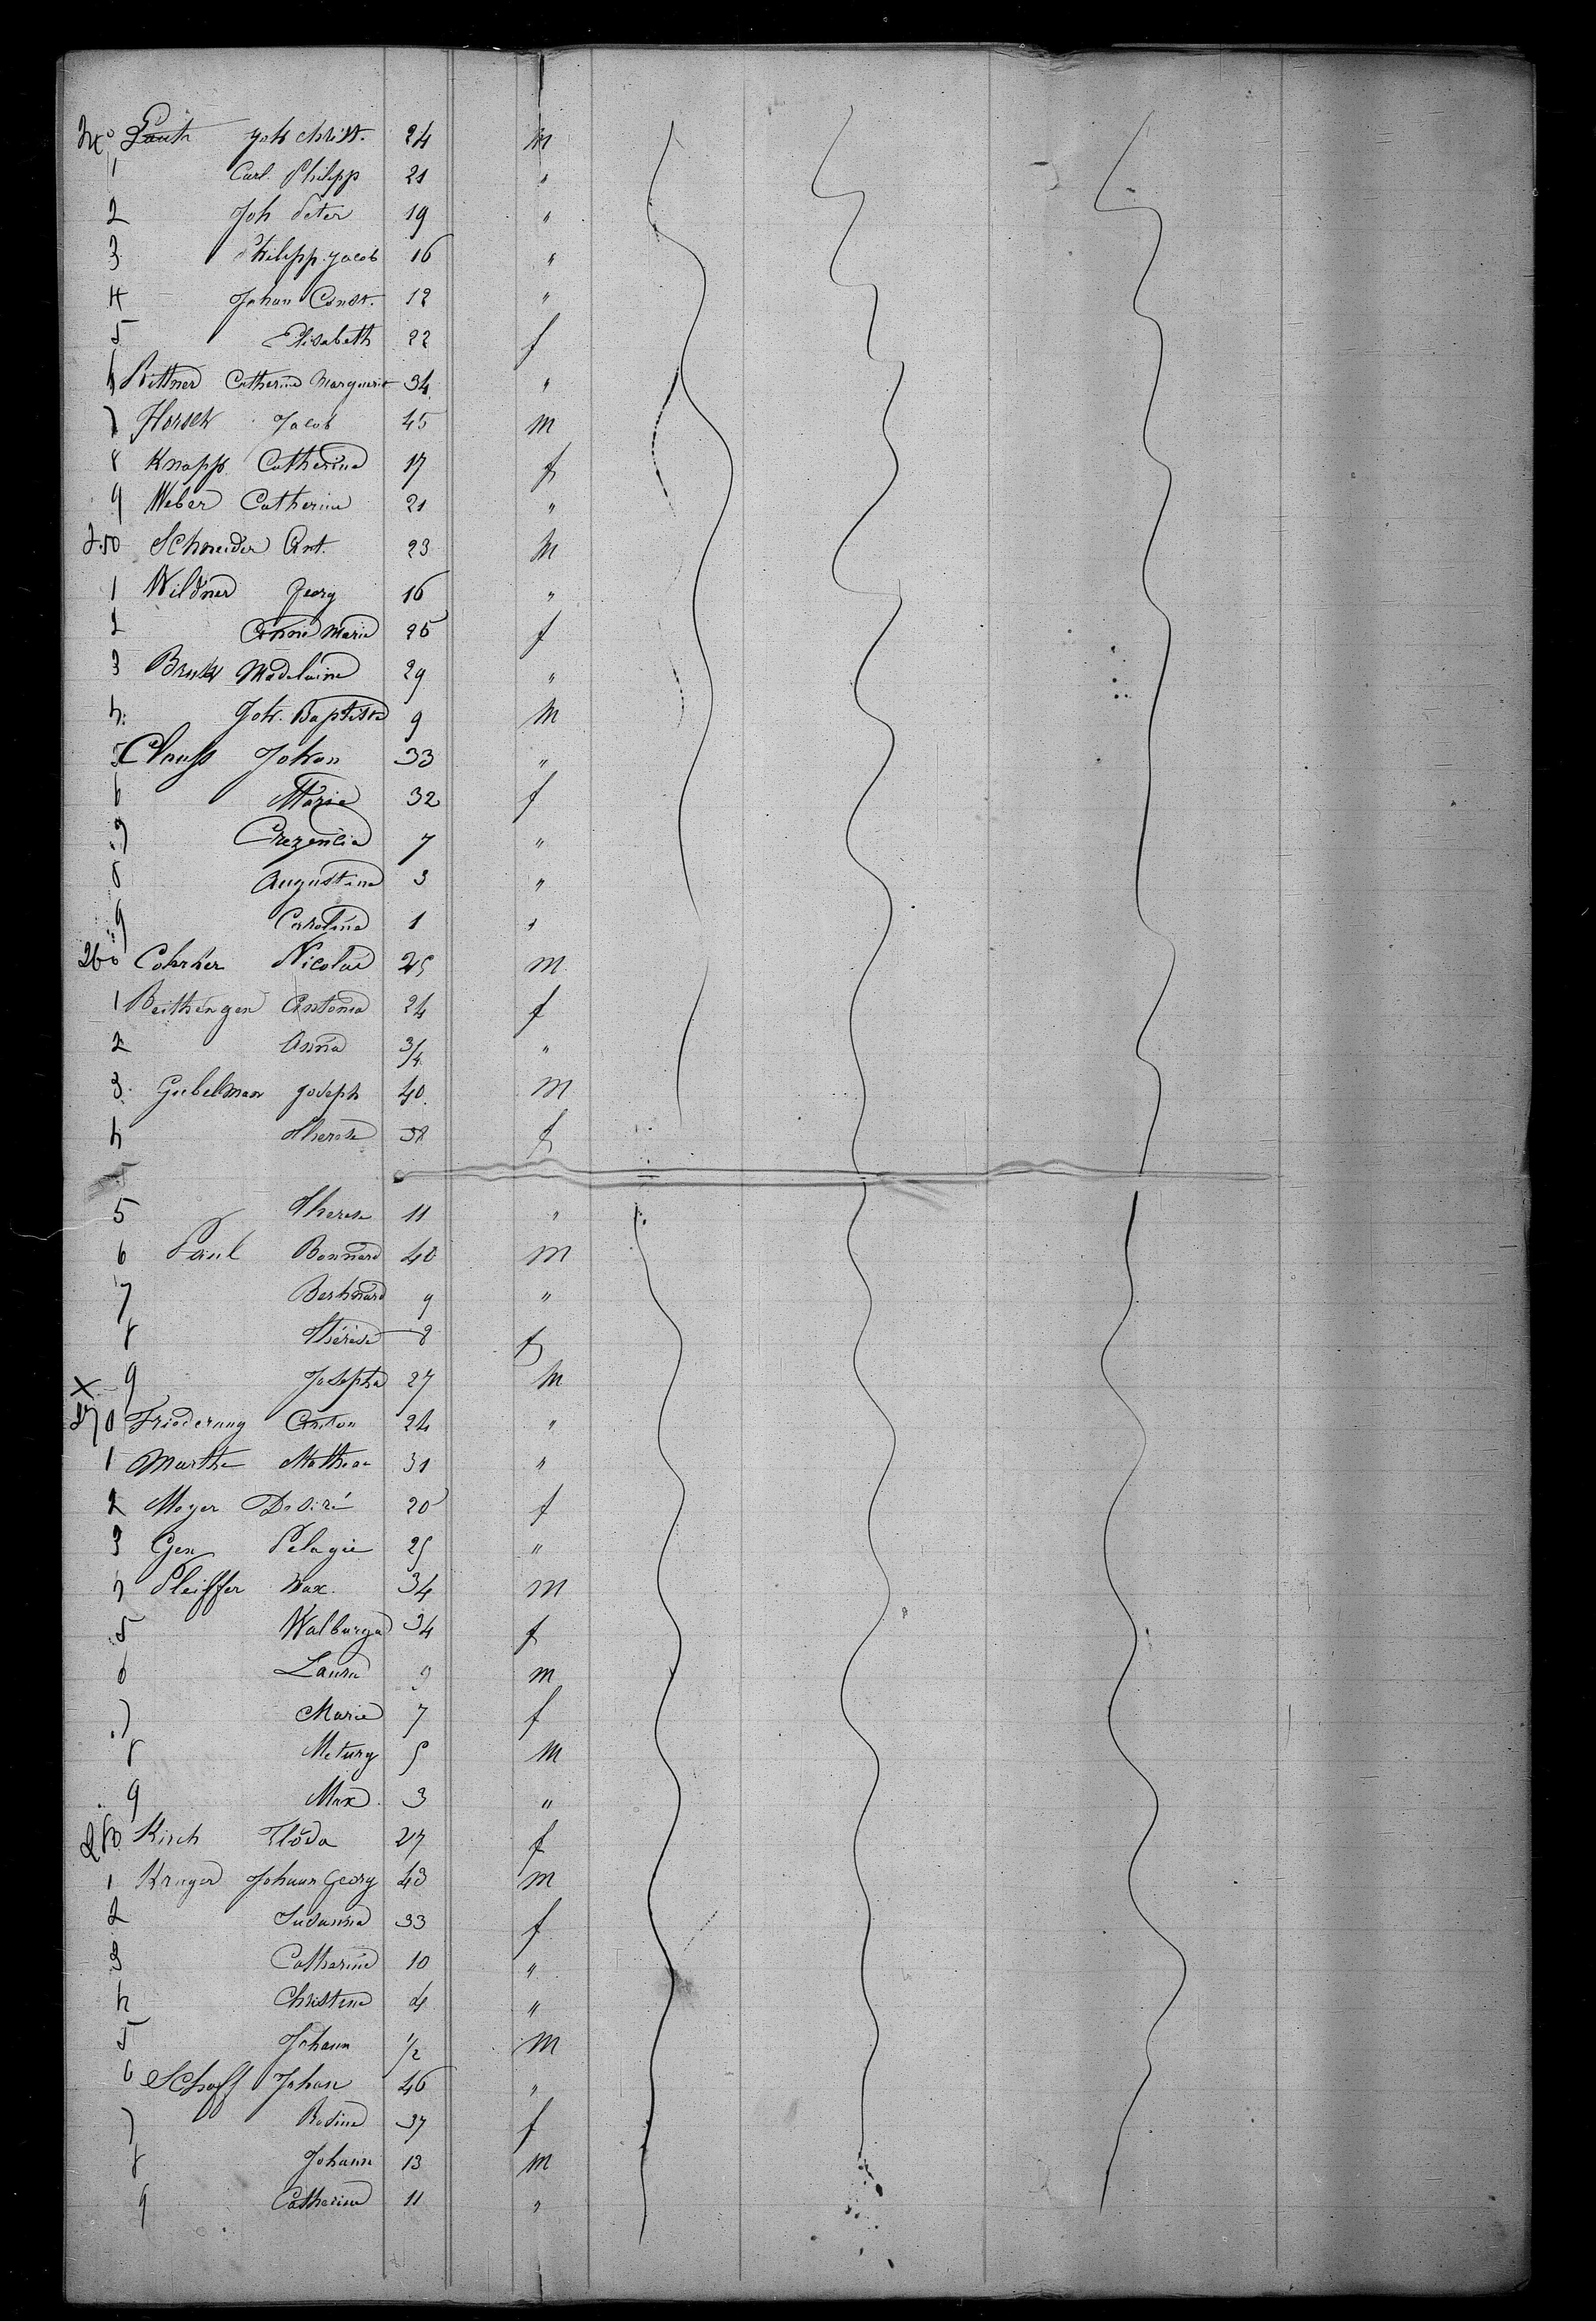 240 Lauth Joh Christ. 24 m
1 Carl Philipp 21 "
2 Joh Peter 19 "
3 Philipp Jacob 16 "
4 Johan Const. 12 "
5 Elisabeth 22 f
6 Rittner Catherine Marguerite 34 "
7 Horsch Jacob 45 m
8 Knapp Catherine 17 f
9 Weber Catherine 21 "
250 Schneider Ant. 23 m
1 Wildner Georg 16 "
2 Anne Marie 26 f
3 Madelaine 29 "
4 Joh. Baptiste 9 m
5 Clauss Johan 33 "
6 Maria 32 f
7 Crezencia 7 "
8 Augustine 3 "
9 Carolina 1 "
260 Nicolas 25 m
1 Beithingen Antonia 24 f
2 Anna 3/4 "
3 Gubelman Joseph 40 m
4 Therese 38 f
5 Therese 11 "
6 Paul Bonnard 40 m
7 Bernhard 9 "
8 Thérèse 8 f
9 Josepha 27 m
X
270 Friederung Anton 24 "
1 Marthe Mathias 31 "
2 Meyer Desiré 20 f
3 Gen Pelagie 25 "
4 Pfeiffer Max. 34 m
5 Walburga 34 f
6 Laura 9 m
7 Marie 7 f
8 5 m
9 Max 3 "
280 Kirch 27 f
1 Kruger Johann Georg 43 m
2 Susanna 33 f
3 Catherine 10 "
4 Christine 4 "
5 Johann 1/2 m
6 Schaff Johan 46 "
7 Rosine 37 f
8 Johann 13 m
9 Catherine 11 "